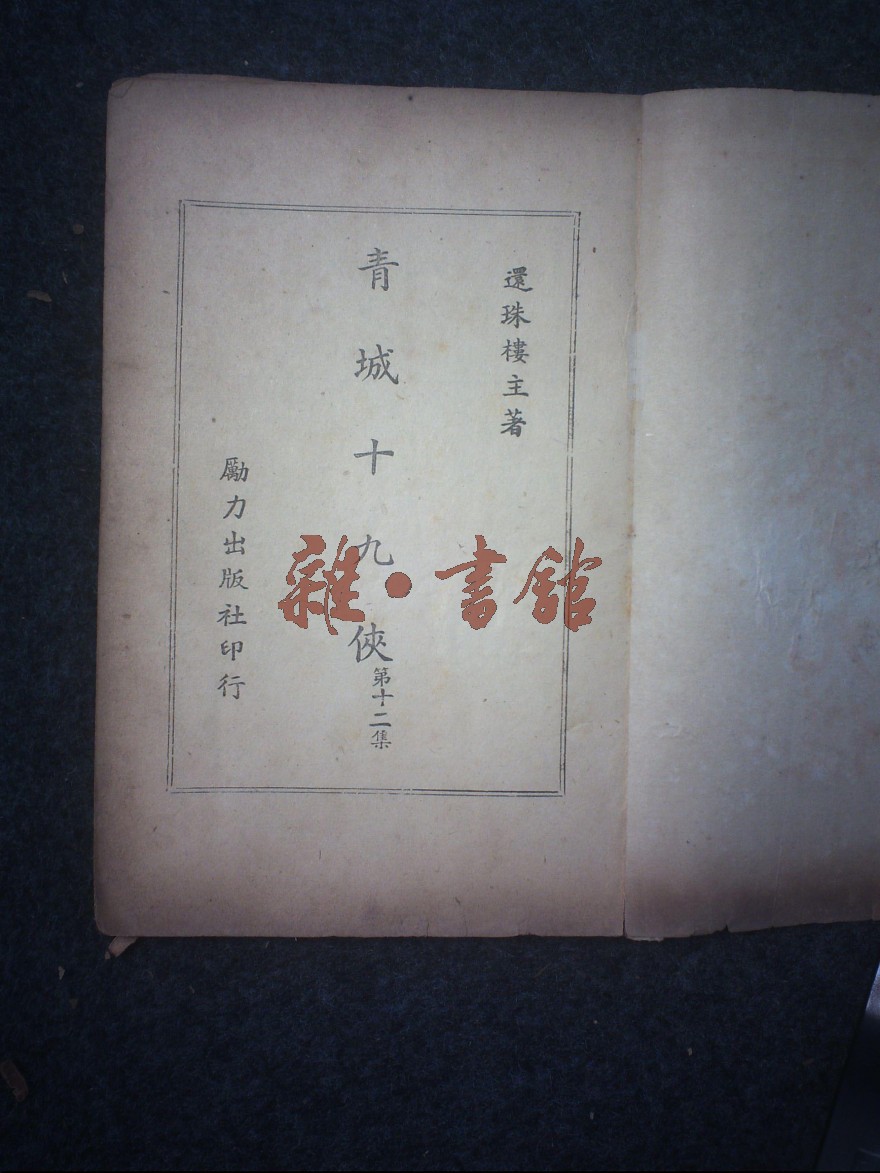 還珠樓主著
青城十九俠
第十二集
勵力出版社印行
雜·書館